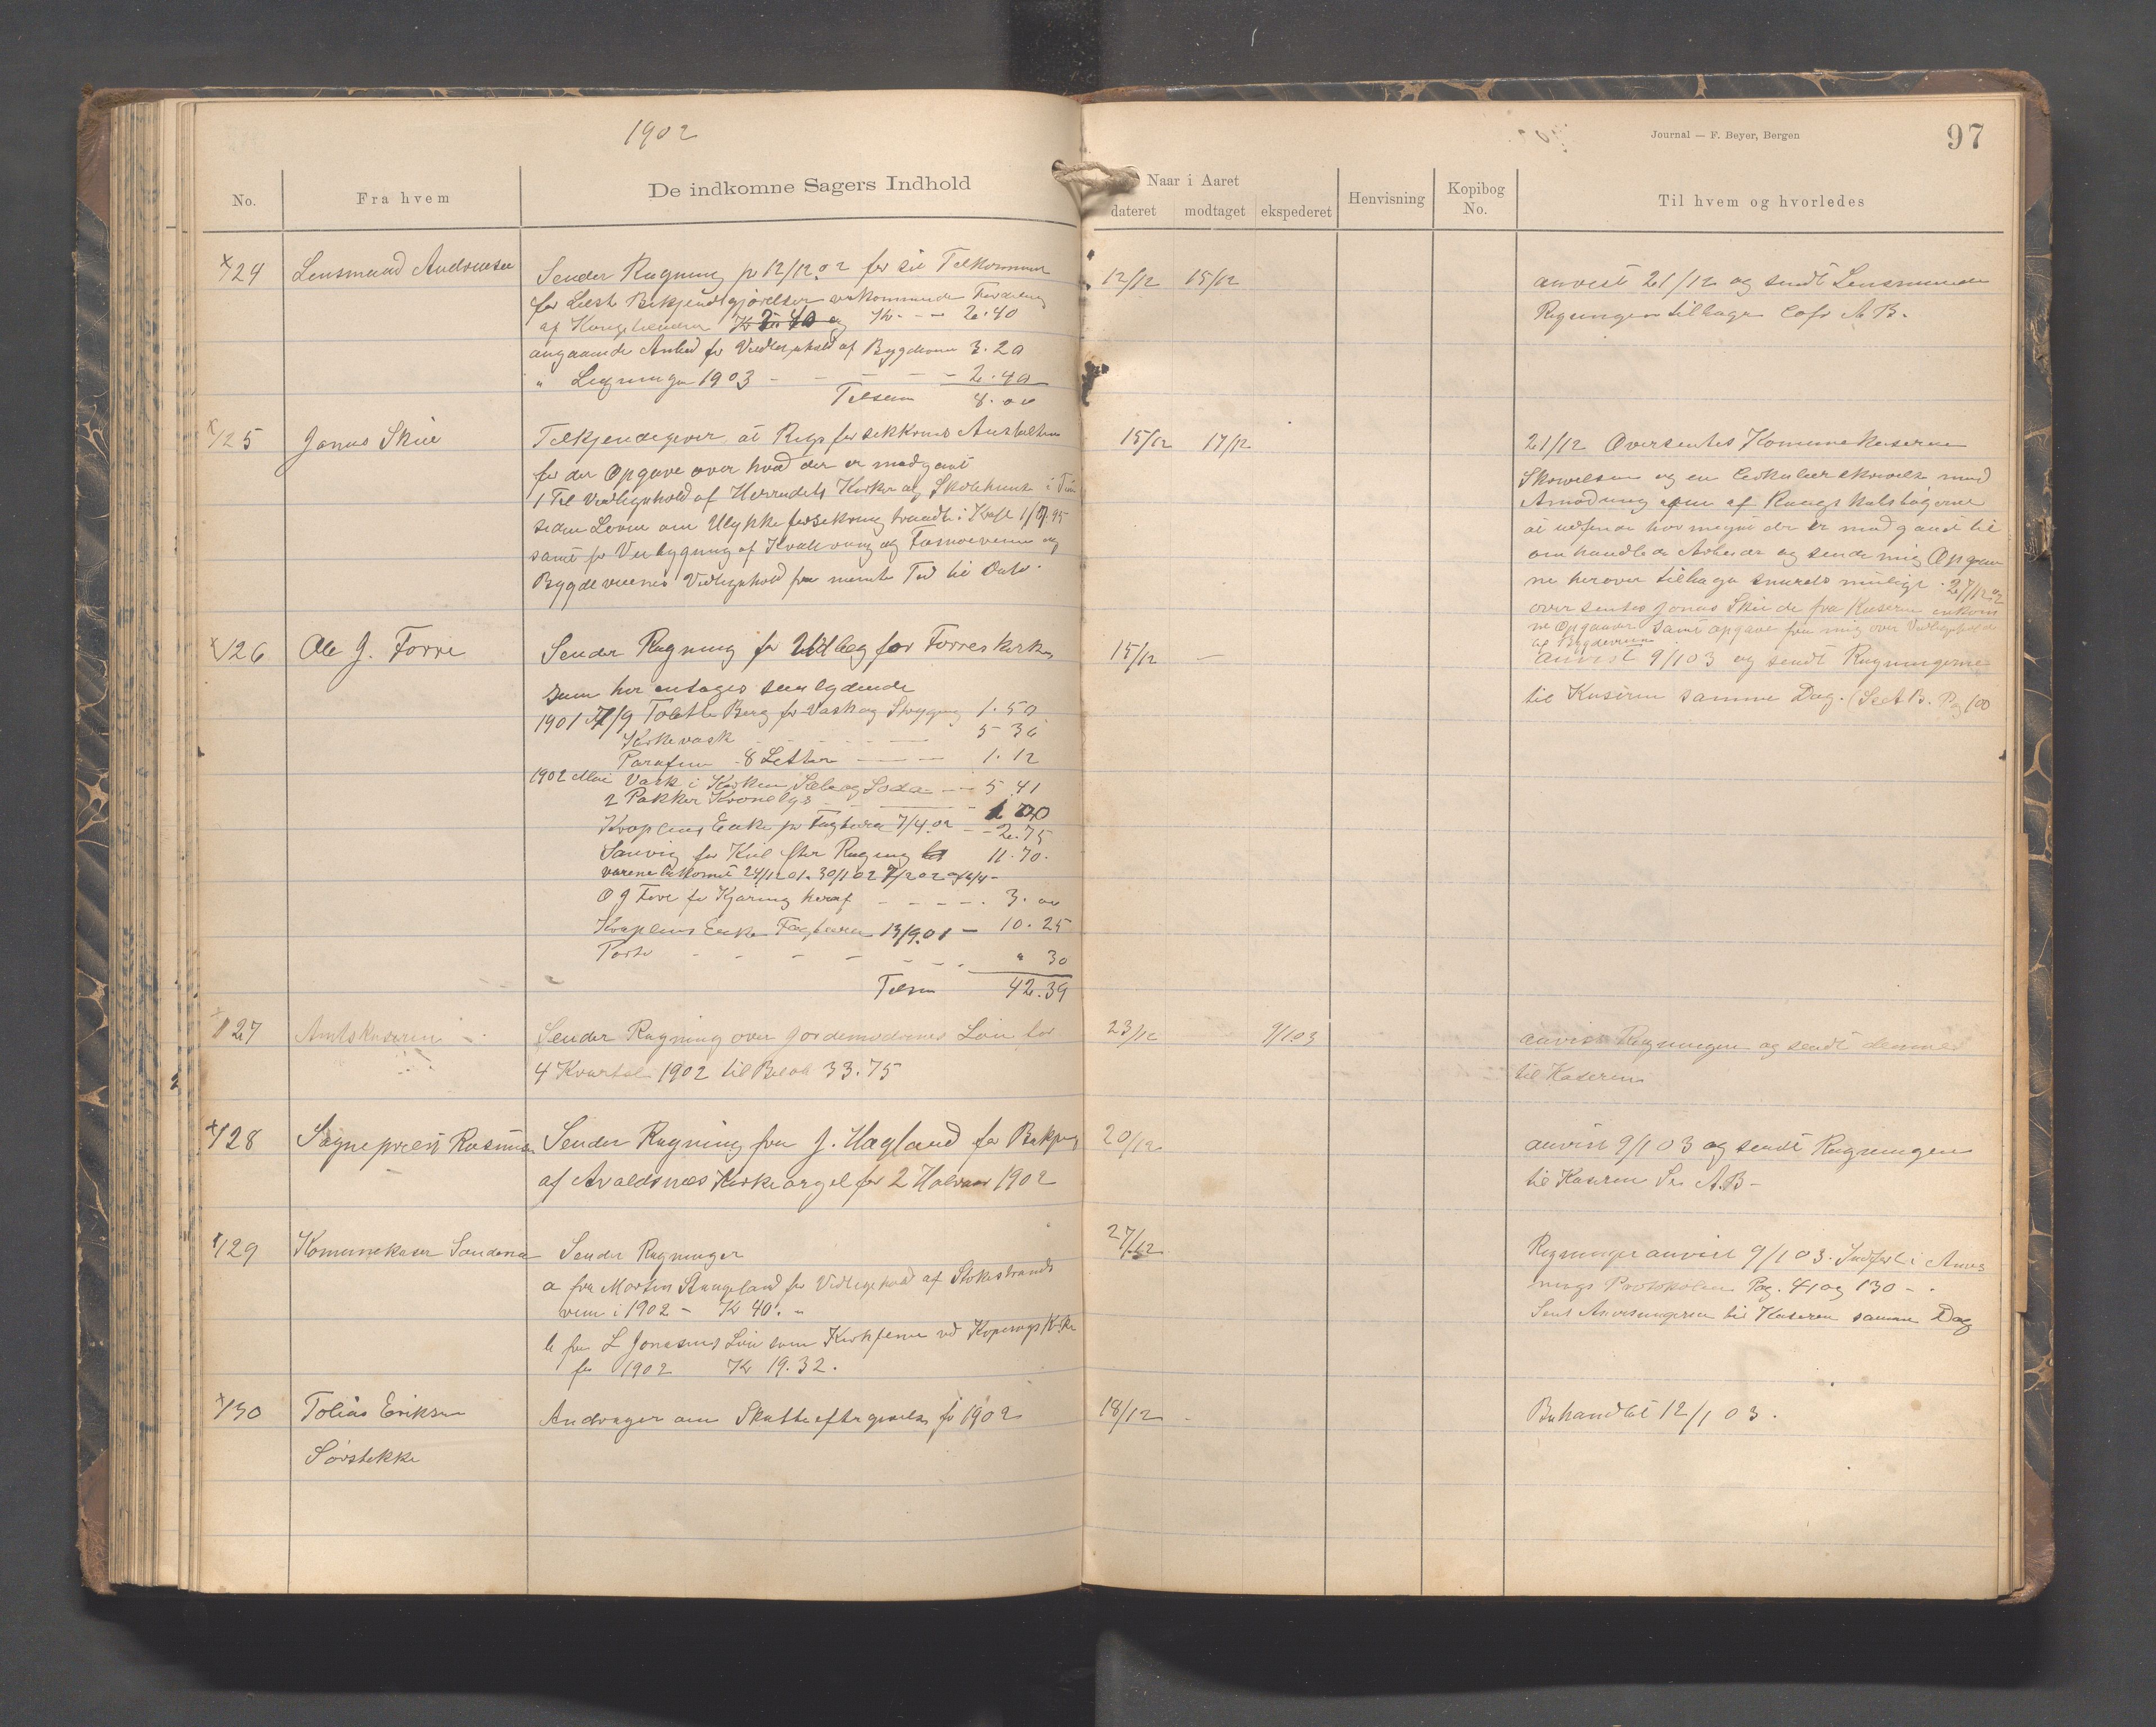 1902
Journal — F. Beyer, Bergen
97
No.
Fra hvem
De indkomne Sagers Indhold
Naar i Aaret
dateret
modtaget
ekspederet
Henvisning
Kopibog
No.
Til hvem og hvorledes
124
Lensmand Andreasen
Sender Regning pr 12/12.02 for sit Tilkommende
for Læst Bekjendtgjørelser vedkommende
af Kr. 2.40
angaaende Anbud for Vedligehold af Bygdevene 3.20
" Ligningen 1903 - - - - - 2.40
Tilsam 8.00
12/12
15/12
anvist 21/12 og sendt Lensmanden
Regningen tilbage Cofr A B.
125
Jonas Skue
Tilkjendegiver at Rigsforsikkrings Anstalten
for der Opgave over hvad der er medgaaet
1 Til Vedligehold af Herredets Kirker og Skolehuse i
siden Loven om Ulykkeforsikring traadte i Kraft 1/7.95
samt for Veibygning af og Fosnaveien og
Bygdeveienes Vedligehold fra nevnte Tid til Dato.
15/12
17/12
21/12 Oversendtes Kommunekasseren
Skrivelsen og en Cirkulærskrivelse med
Anmodning om af Regnskabsbøgerne
at udfinde hvor meget der er medgaaet til
omhandlede Arbeider og sende mig Opgaver
ne herover tilbage snarest muligt. 27/12 02
oversendtes Jonas Skue de fra Kaseren indkom
ne Opgaver samt opgave fra mig over Vedligeholdet
af Bygdeveiene
126
Ole J. Forre
Sender Regning for Udlæg for Torres Kirke
som her intages saalydende
1901 7/9 Tolette Berg for Vask og 1.50
Kirkevask 5 36
Parafin - 8 Litter - - - 1.12
1902 Mai Vask i Kirken Sæbe og Soda - - 5 41
2 Pakker Kronelys - - 1 00
Enke pr Fagtura 7/4.02 - - 2.75
for Kul efter Regning 11.70.
varene bekomet 24/12 01. 30/1 02 7/2 02 og 4/4 -
O J Fore for Kjøring heraf - - - - 3.00
Enke Fagtura 13/9.01 - 10.25
Porto - - - - - - - " 30
Tilsm 42.39
15/12
—
anvist 9/1 03 og sendt Regningerne
til Kaseren samme Dag. (Se A B. Pag 100
127
Amtskaseren
Sender Regning over Jordemodrenes Løn for
4 Kvartal 1902 til Beløb 33.75
23/12
9/1.03
anvist Regningen og sendt denne
til Kaseren
128
Sogneprest Rasmus
Sender Regning fra J. Hagland for
af Avaldsnes Kirkeorgel for 2 Halvaar 1902
20/12
anvist 9/1 03 og sendt Regningen
til Kaseren Se A.B -
129
Komunekaser Sandena
Sender Regninger
a fra Morten Stangeland for Vedligehold af Stokestrands
veien i 1902 - Kr 40. "
b fra L Jonassens Løn som Kirketjener ved Kopervigs Kirke
for 1902 Kr 19.32.
27/12
Regninger anvist 9/1 03. Indført i Anvis
nings Protokolen Pag. 41 og 130 - .
Sent Anvisningerne til Kaseren samme Dag
130
Tobias Eriksen
Sørstokke
Andrager om Skatteeftergivelse for 1902
18/12
Behandlet 12/1 03.